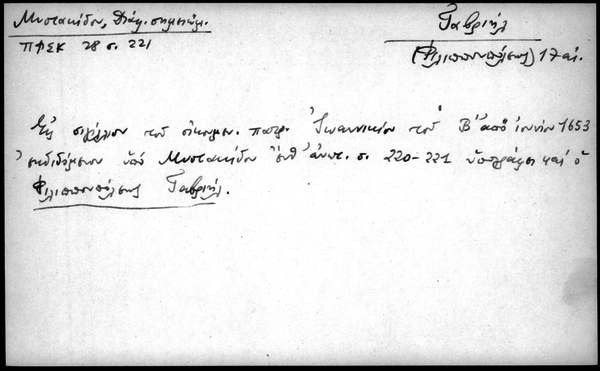 Μυστακίδου, Διάφ. σημειώμ.
ΠΦΣΚ 28 σ. 221
Γαβριήλ
(Φιλιππουπόλεως) 17 αἰ.
Εἰς σιγίλλιον τοῦ οἰκουμεν. πατρ. Ἰωαννικίου τοῦ Β΄ ἀπὸ ἰουνίου 1653
ἐκδιδόμενον ὑπὸ Μυστακίδου ἔνθ' ἀνωτ. σ. 220-221 ὑπογράφει καὶ ὁ
Φιλιππουπόλεως Γαβριήλ.